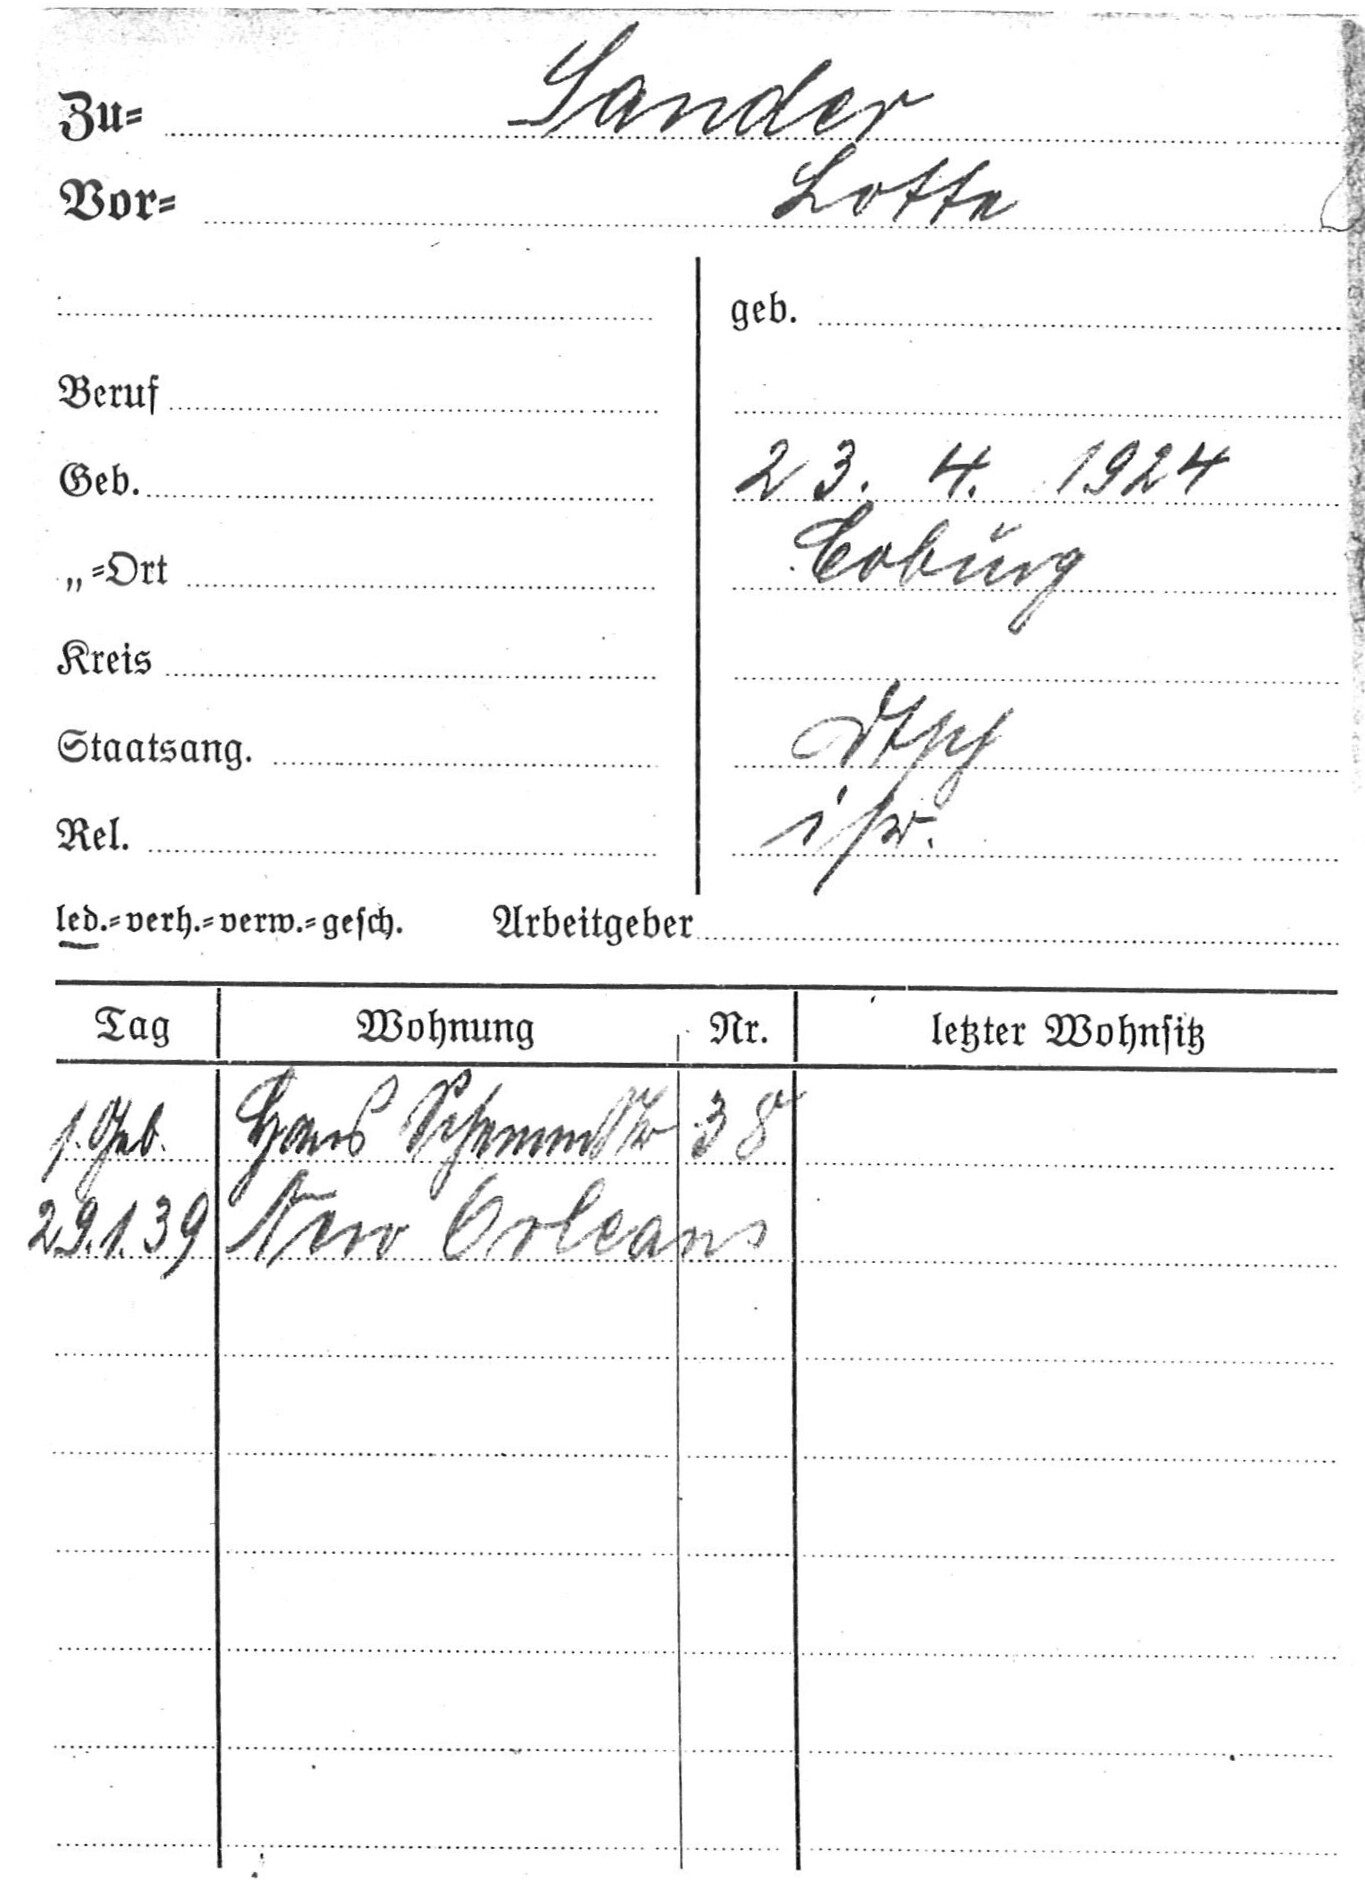 Zu= Sander
Vor= Lotte
geb.
Beruf
Geb. 23. 4. 1924
„=Ort Coburg
Kreis
Staatsang. Dtsch
Rel. isr.
led.=verh.=verw.=gesch. Arbeitgeber
Tag Wohnung Nr. letzter Wohnsitz
1. Geb. Hans Schemmstr 38
29.1.39 New Orleans